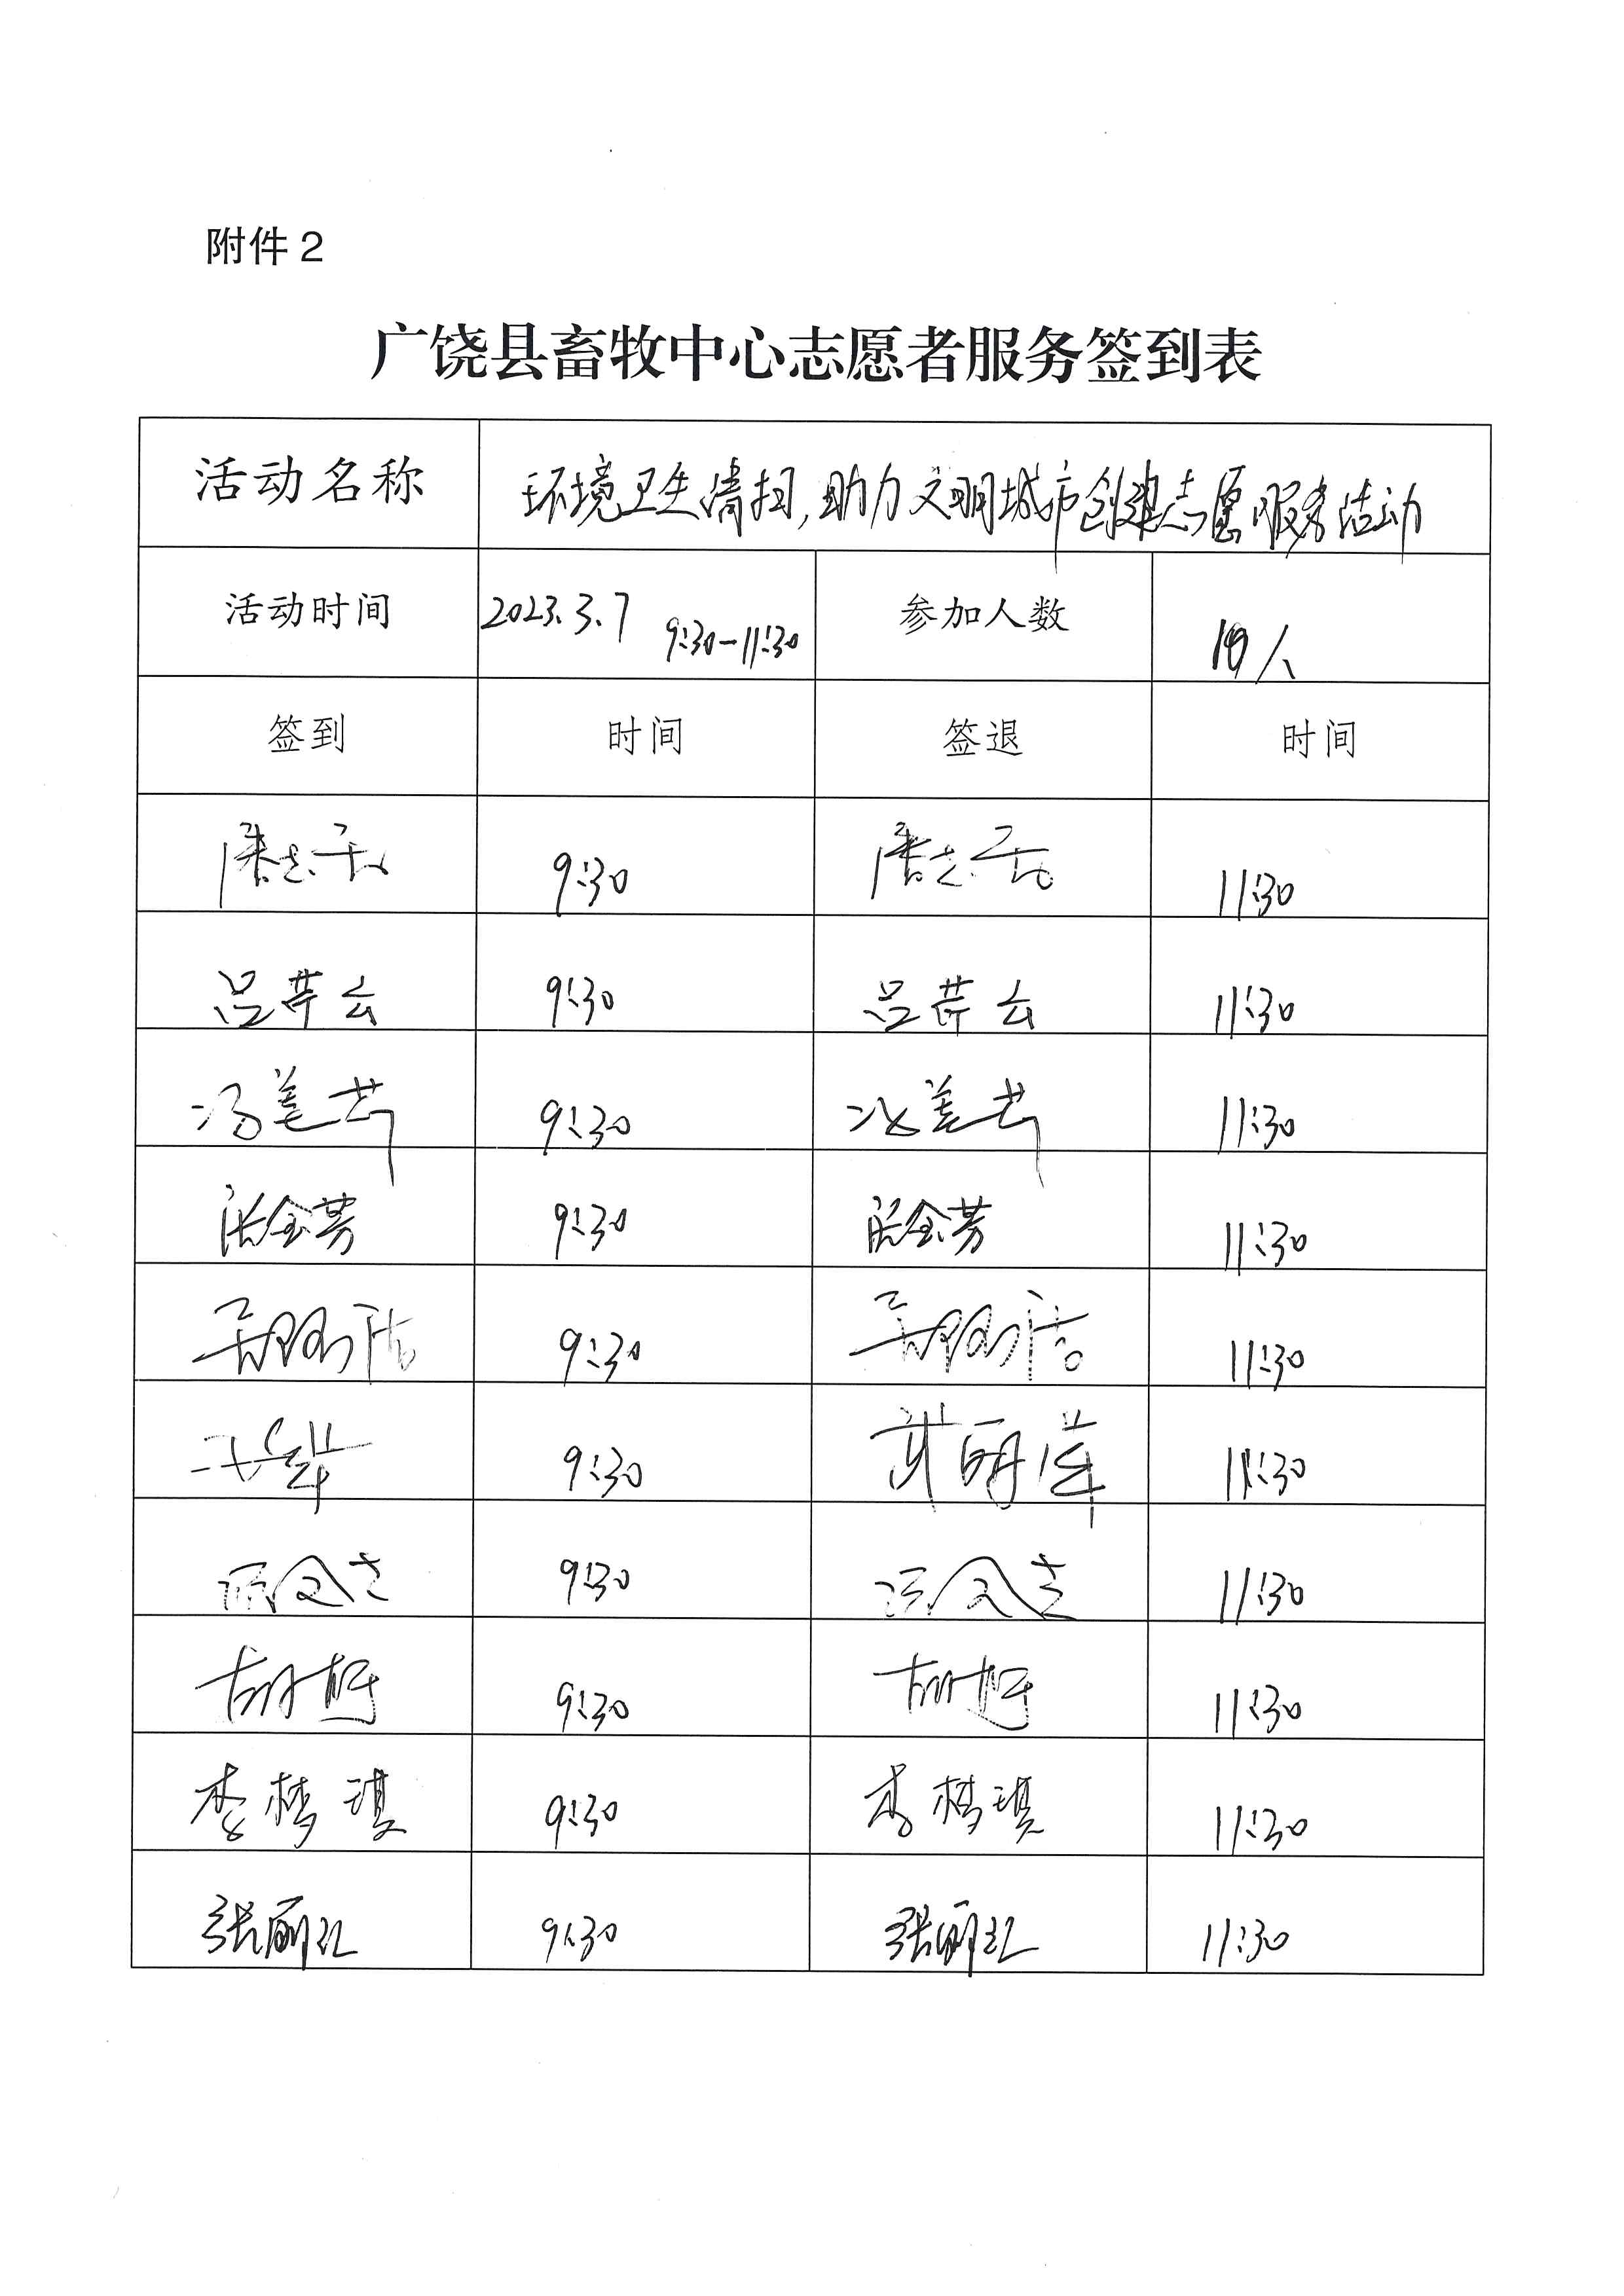 附件2
广饶县畜牧中心志愿者服务签到表
活动名称 环境卫生清扫,助力文明城市创建志愿服务活动
活动时间 2023.3.7 9:30-11:30 参加人数 10人
签到 时间 签退 时间
9:30 11:30
吕芹云 9:30 吕芹云 11:30
冯美芹 9:30 冯美芹 11:30
张金芳 9:30 张金芳 11:30
9:30 11:30
9:30 11:30
9:30 11:30
胡 9:30 胡 11:30
李梦琪 9:30 李梦琪 11:30
张丽红 9:30 张丽红 11:30